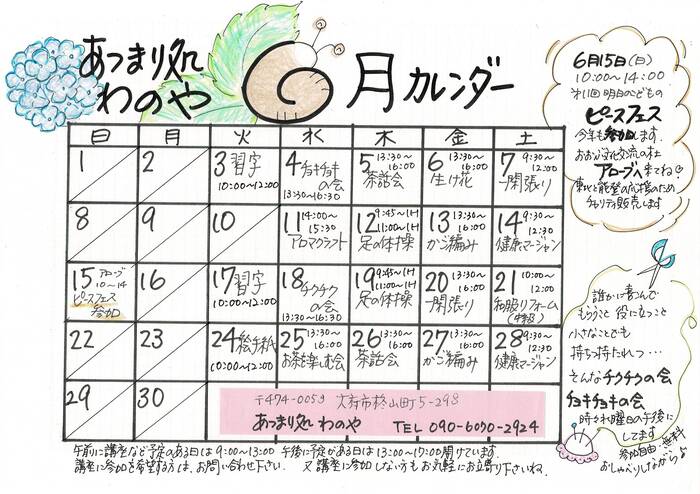 あつまり処
わのや
6月カレンダー
6月15日(日)
10:00～14:00
第11回 明日のこどもの
ピースフェス
今年も参加します
アローブへ来てね
チャリティ販売します
日 月 火 水 木 金 土
1
2
3 習字
10:00～12:00
4 チョキチョキ
の会
13:30～16:30
5 13:30～
16:00
茶話会
6 13:30～
16:00
生け花
7 9:30～
12:00
一閑張り
8
9
10
11 14:00～
15:30
アロマクラフト
12 9:45～1H
11:00～1H
足の体操
13 13:30～
16:00
かご編み
14 9:30～
12:30
健康マージャン
15 アローブ
10～14
ピースフェス
参加
16
17 習字
10:00～12:00
18 チクチク
の会
13:30～16:30
19 9:45～1H
11:00～1H
足の体操
20 13:30～
16:00
一閑張り
21 10:00～
12:00
和服リフォーム
22
23
24 絵手紙
10:00～12:00
25 13:30～
16:00
お茶を楽しむ会
26 13:30～
16:00
茶話会
27 13:30～
16:00
かご編み
28 9:30～
12:30
健康マージャン
29
30
〒474-0059 大府市柊山町5-298
あつまり処 わのや TEL 090-6070-2924
誰かに喜んで
もらうこと 役に立つこと
小さなことでも
持ちつ持たれつ…
そんなチクチクの会
チョキチョキの会
時々水曜日の午後に
してます
参加自由・無料
おしゃべりしながらよ
午前に講座など予定のある日は9:00～13:00 午後に予定がある日は13:00～17:00開けています。
講座に参加を希望する方は、お問い合わせ下さい。 又 講座に参加しない方もお気軽にお立寄り下さいね。